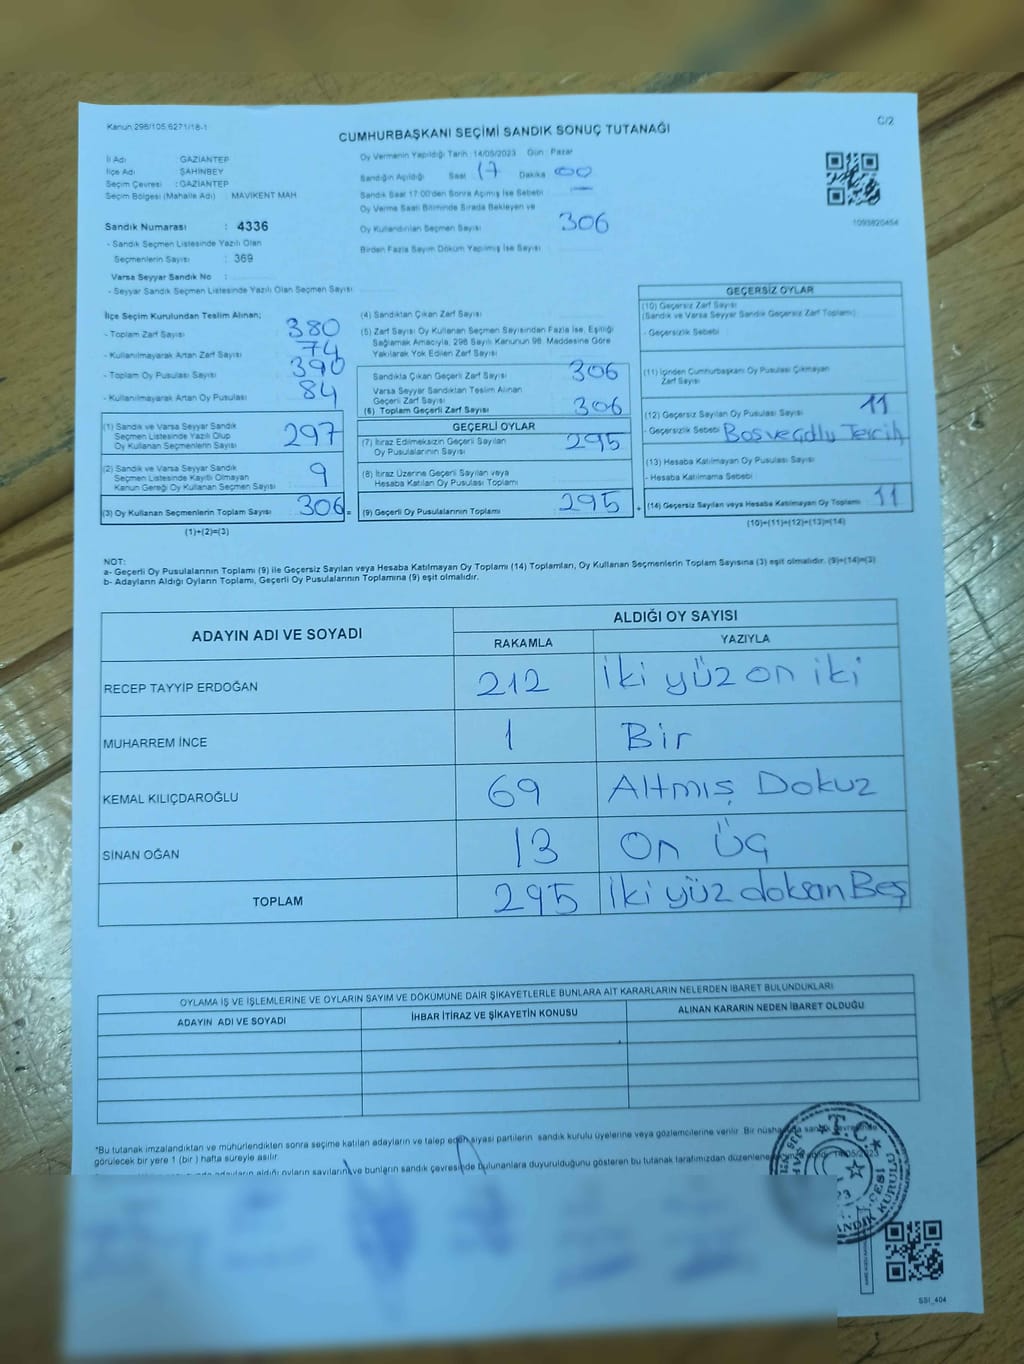 Kanun 298/105,6271/18-1
C/2
CUMHURBAŞKANI SEÇİMİ SANDIK SONUÇ TUTANAĞI
İl Adı : GAZİANTEP
İlçe Adı : ŞAHİNBEY
Seçim Çevresi : GAZİANTEP
Seçim Bölgesi (Mahalle Adı) : MAVIKENT MAH
Sandık Numarası : 4336
- Sandık Seçmen Listesinde Yazılı Olan
Seçmenlerin Sayısı : 369
Varsa Seyyar Sandık No :
- Seyyar Sandık Seçmen Listesinde Yazılı Olan Seçmen Sayısı
Oy Vermenin Yapıldığı Tarih : 14/05/2023 Gün : Pazar
Sandığın Açıldığı Saat 17 Dakika 00
Sandık Saat 17:00'den Sonra Açılmış İse Sebebi —
Oy Verme Saati Bitiminde Sırada Bekleyen ve
Oy Kullandırılan Seçmen Sayısı 306
Birden Fazla Sayım Döküm Yapılmış İse Sayısı
1093820454
İlçe Seçim Kurulundan Teslim Alınan;
- Toplam Zarf Sayısı 380
- Kullanılmayarak Artan Zarf Sayısı 74
- Toplam Oy Pusulası Sayısı 390
- Kullanılmayarak Artan Oy Pusulası 84
(1) Sandık ve Varsa Seyyar Sandık
Seçmen Listesinde Yazılı Olup
Oy Kullanan Seçmenlerin Sayısı 297
(2) Sandık ve Varsa Seyyar Sandık
Seçmen Listesinde Kayıtlı Olmayan
Kanun Gereği Oy Kullanan Seçmen Sayısı 9
(3) Oy Kullanan Seçmenlerin Toplam Sayısı 306 =
(1)+(2)=(3)
(4) Sandıktan Çıkan Zarf Sayısı
(5) Zarf Sayısı Oy Kullanan Seçmen Sayısından Fazla İse, Eşitliği
Sağlamak Amacıyla, 298 Sayılı Kanunun 98. Maddesine Göre
Yakılarak Yok Edilen Zarf Sayısı
Sandıkta Çıkan Geçerli Zarf Sayısı 306
Varsa Seyyar Sandıktan Teslim Alınan
Geçerli Zarf Sayısı
(6) Toplam Geçerli Zarf Sayısı 306
GEÇERLİ OYLAR
(7) İtiraz Edilmeksizin Geçerli Sayılan
Oy Pusulalarının Sayısı 295
(8) İtiraz Üzerine Geçerli Sayılan veya
Hesaba Katılan Oy Pusulası Toplamı
(9) Geçerli Oy Pusulalarının Toplamı 295 +
GEÇERSİZ OYLAR
(10) Geçersiz Zarf Sayısı
(Sandık ve Varsa Seyyar Sandık Geçersiz Zarf Toplamı)
- Geçersizlik Sebebi
(11) İçinden Cumhurbaşkanı Oy Pusulası Çıkmayan
Zarf Sayısı
(12) Geçersiz Sayılan Oy Pusulası Sayısı 11
- Geçersizlik Sebebi Boş ve Çoklu Tercih
(13) Hesaba Katılmayan Oy Pusulası Sayısı
- Hesaba Katılmama Sebebi
(14) Geçersiz Sayılan veya Hesaba Katılmayan Oy Toplamı 11
(10)+(11)+(12)+(13)=(14)
NOT:
a- Geçerli Oy Pusulalarının Toplamı (9) ile Geçersiz Sayılan veya Hesaba Katılmayan Oy Toplamı (14) Toplamları, Oy Kullanan Seçmenlerin Toplam Sayısına (3) eşit olmalıdır. (9)+(14)=(3)
b- Adayların Aldığı Oyların Toplamı, Geçerli Oy Pusulalarının Toplamına (9) eşit olmalıdır.
ADAYIN ADI VE SOYADI
ALDIĞI OY SAYISI
RAKAMLA YAZIYLA
RECEP TAYYİP ERDOĞAN 212 İki yüz on iki
MUHARREM İNCE 1 Bir
KEMAL KILIÇDAROĞLU 69 Altmış Dokuz
SİNAN OĞAN 13 On Üç
TOPLAM 295 İki yüz doksan Beş
OYLAMA İŞ VE İŞLEMLERİNE VE OYLARIN SAYIM VE DÖKÜMÜNE DAİR ŞİKAYETLERLE BUNLARA AİT KARARLARIN NELERDEN İBARET BULUNDUKLARI
ADAYIN ADI VE SOYADI İHBAR İTİRAZ VE ŞİKAYETİN KONUSU ALINAN KARARIN NEDEN İBARET OLDUĞU
*Bu tutanak imzalandıktan ve mühürlendikten sonra seçime katılan adayların ve talep eden siyasi partilerin sandık kurulu üyelerine veya gözlemcilerine verilir. Bir nüshası sandık çevresinde
görülecek bir yere 1 (bir) hafta süreyle asılır.
adayların aldığı oyların sayılarını ve bunların sandık çevresinde bulunanlara duyurulduğunu gösteren bu tutanak tarafımızdan düzenlenerek 14/05/2023
T.C.
SANDIK KURULU
SSI_404